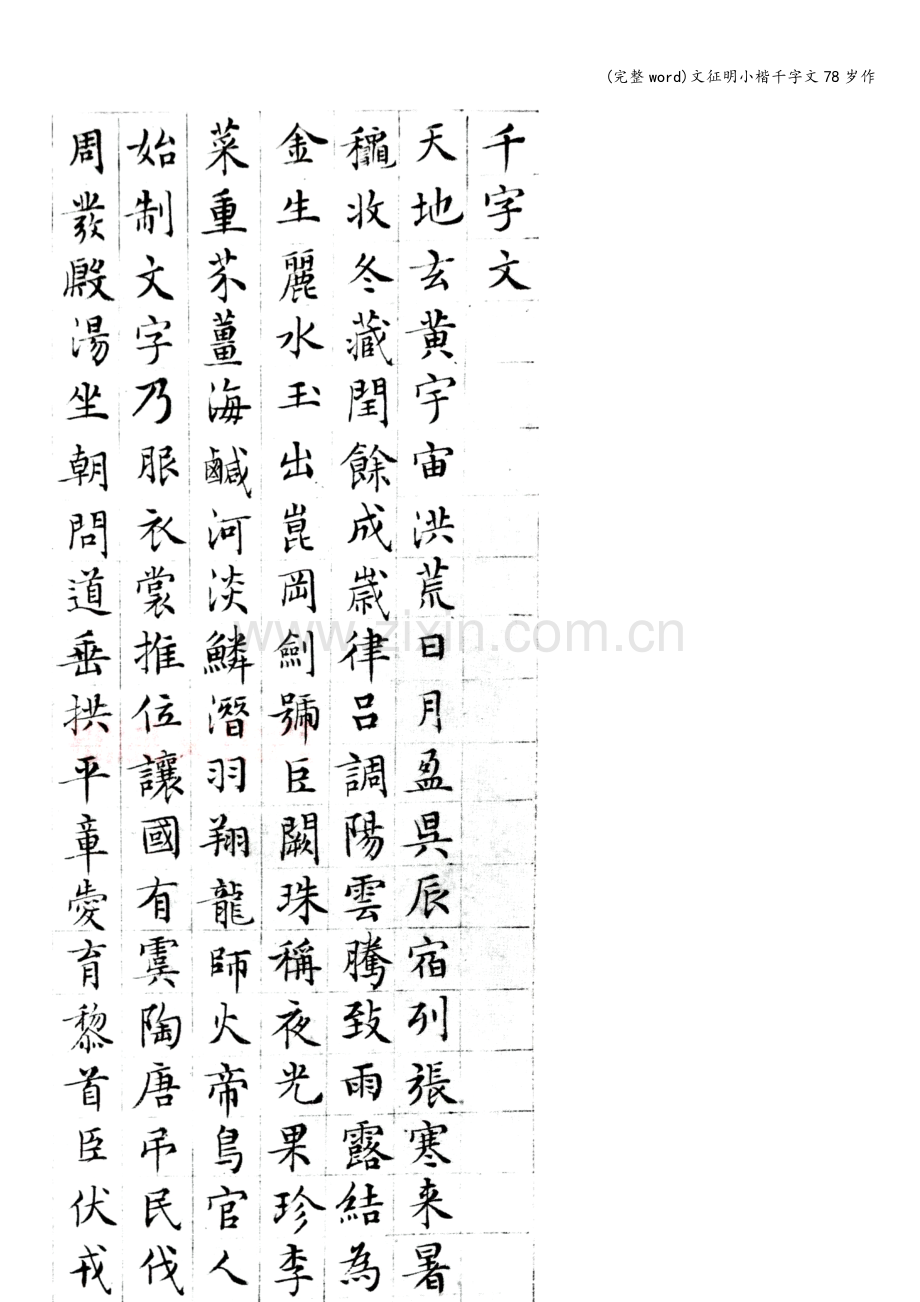 (完整word)文征明小楷千字文78岁作
千字文
天地玄黄宇宙洪荒日月盈昃辰宿列張寒来暑
穐收冬藏閏餘成歲律吕調陽雲騰致雨露結為
金生麗水玉出崑岡劍號巨闕珠稱夜光果珍李
菜重芥薑海鹹河淡鱗潛羽翔龍師火帝鳥官人
始制文字乃服衣裳推位讓國有虞陶唐吊民伐
周發殷湯坐朝問道垂拱平章愛育黎首臣伏戎
www.zixin.com.cn